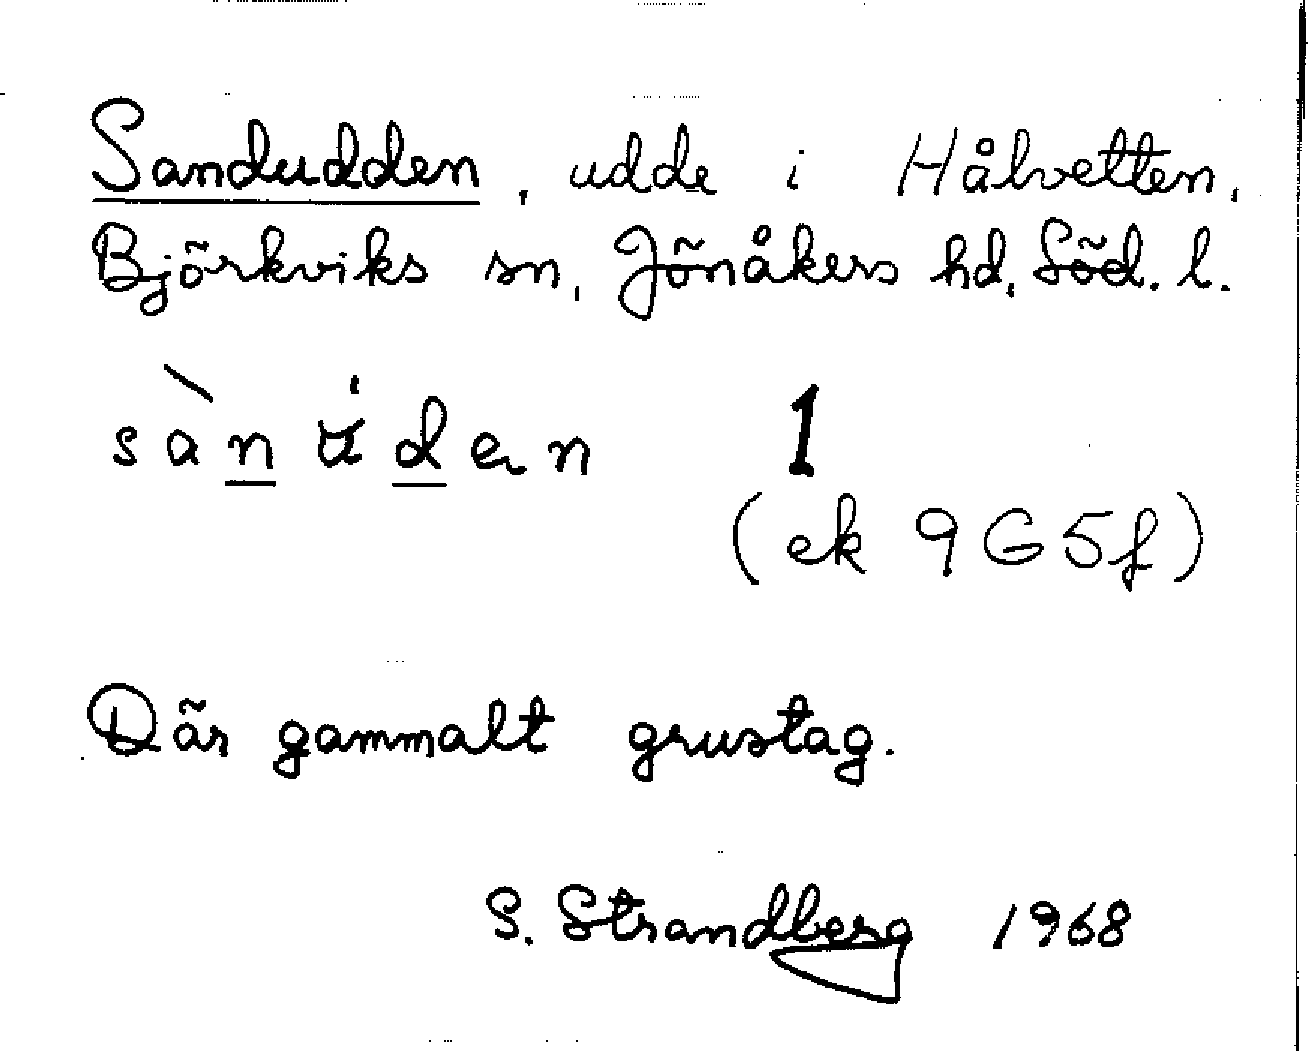 Sandudden, udde i Hålvetten,
Björkviks sn, Jönåkers hd, Söd. l.
1
(ek 9G5f)
Där gammalt grustag.
S. Strandberg 1968